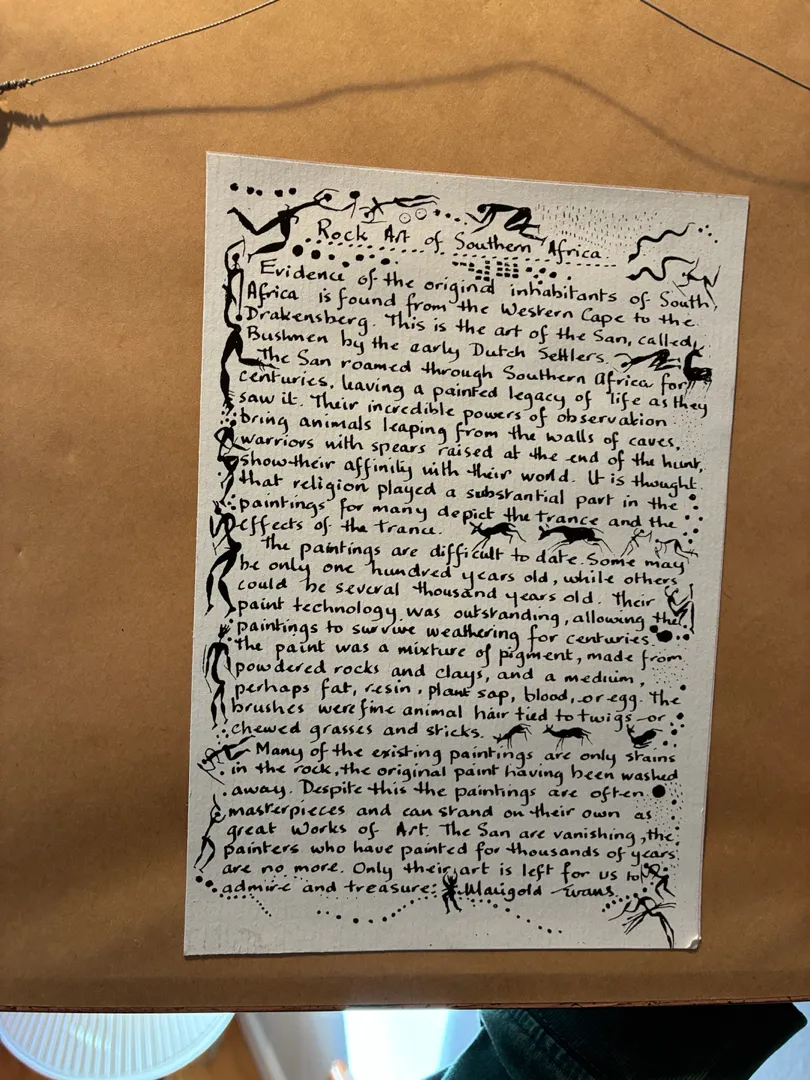 Rock Art of Southern Africa.
Evidence of the original inhabitants of South
Africa is found from the Western Cape to the
Drakensberg. This is the art of the San, called
Bushmen by the early Dutch Settlers.
The San roamed through Southern Africa for
centuries, leaving a painted legacy of life as they
saw it. Their incredible powers of observation
bring animals leaping from the walls of caves,
warriors with spears raised at the end of the hunt,
show their affinity with their world. It is thought
that religion played a substantial part in the
paintings for many depict the trance and the
effects of the trance.
The paintings are difficult to date. Some may
be only one hundred years old, while others
could be several thousand years old. Their
paint technology was outstanding, allowing the
paintings to survive weathering for centuries.
The paint was a mixture of pigment, made from
powdered rocks and clays, and a medium,
perhaps fat, resin, plant sap, blood, or egg. The
brushes were fine animal hair tied to twigs or
chewed grasses and sticks.
Many of the existing paintings are only stains
in the rock, the original paint having been washed
away. Despite this the paintings are often
masterpieces and can stand on their own as
great Works of Art. The San are vanishing, the
painters who have painted for thousands of years
are no more. Only their art is left for us to
admire and treasure. Marigold